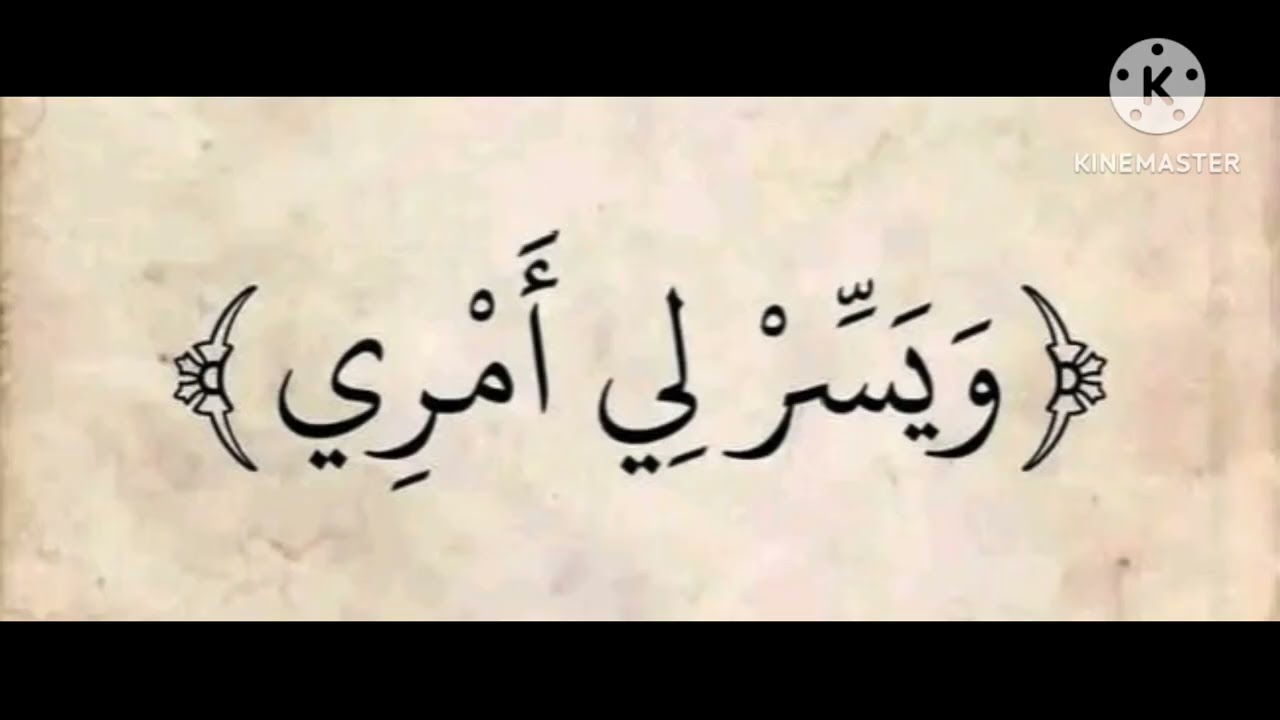 KINEMASTER
﴿ وَيَسِّرْ لِي أَمْرِي ﴾